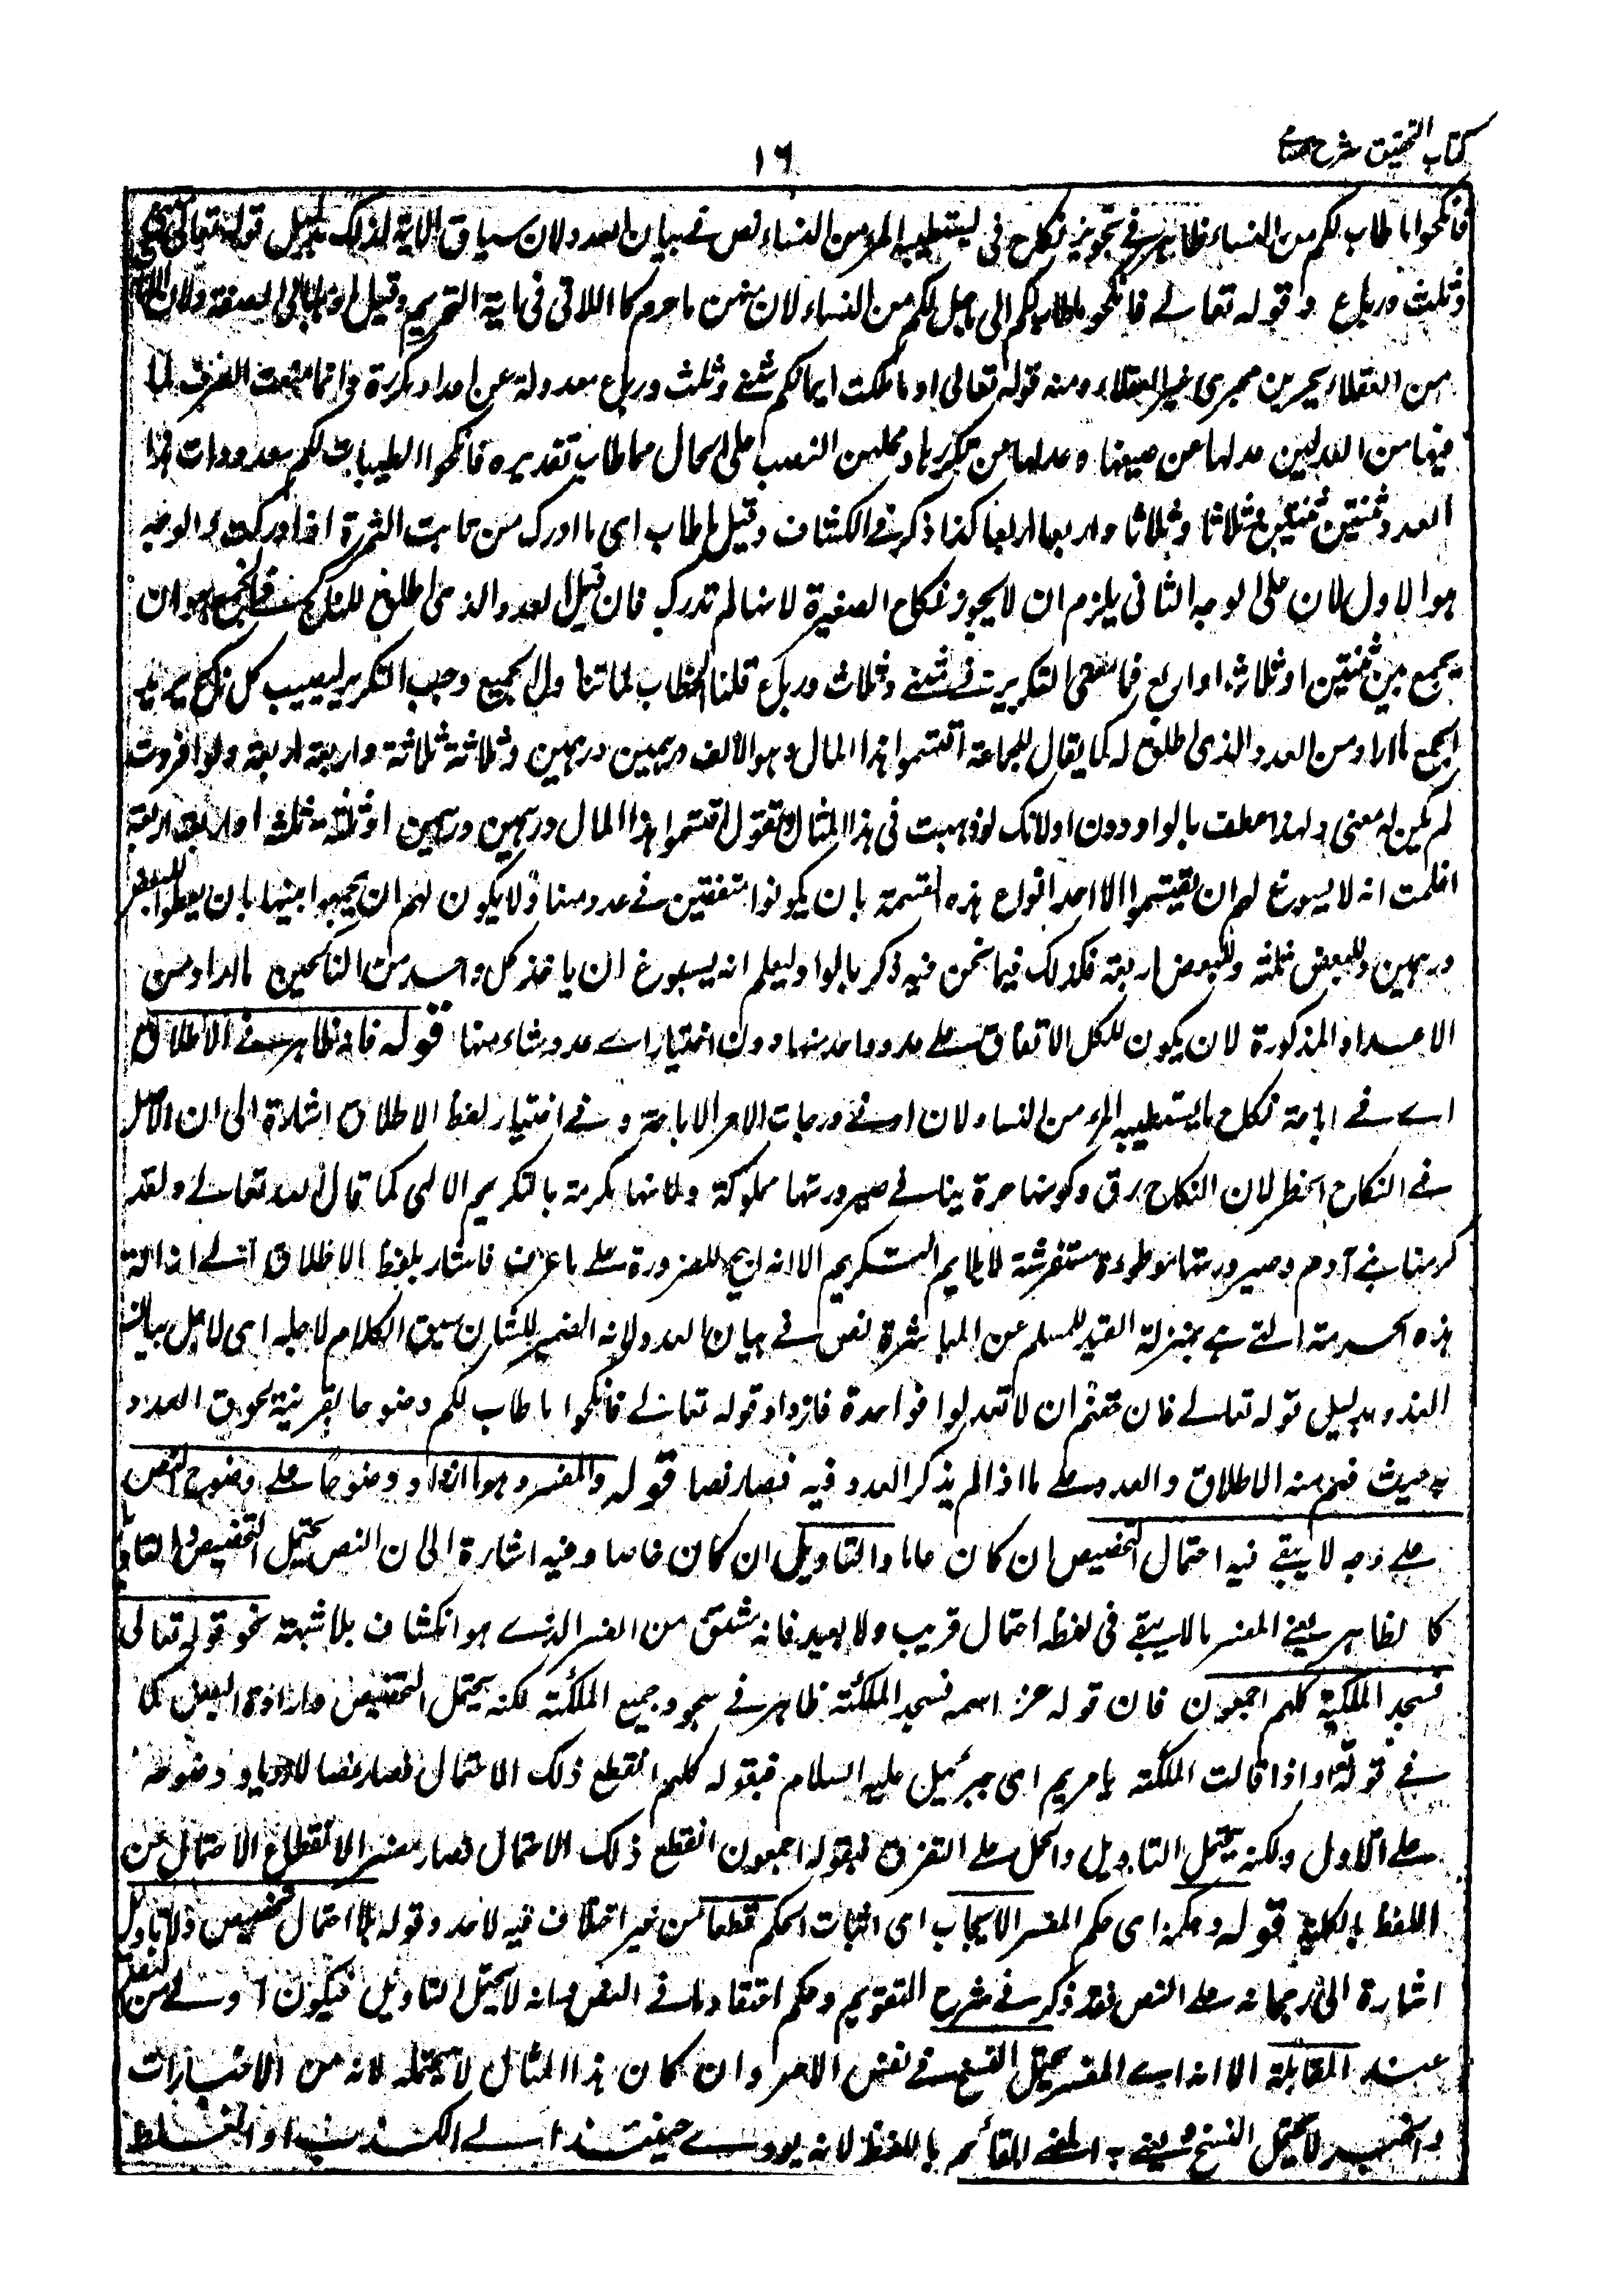 كتاب التحقيق شرح حسامي
١٦
فانكحوا ما طاب لكم من النساء ظاهر في تجويز نكاح في يستطيبه المرء من النساء نص في بيان العدد ولان سياق الآية لذلك بدليل قوله تعالى مثنى
وثلث ورباع وقوله تعالى فانكحوا ما طاب لكم اى ما حل لكم من النساء لان منهن ما حرم كاللاتى فى آية التحريم وقيل ما ذهابا الى الصفة ولان الاناث
من العقلاء يجرين مجرى غير العقلاء ومنه قوله تعالى او ما ملكت ايمانكم مثنى وثلث ورباع معدولة عن اعداد مكررة وانما منعت الصرف لما
فيها من العدلين عدلها عن صيغها وعدلها عن تكررها ومحلهن النصب على الحال مما طاب تقديره فانكحوا الطيبات لكم معدودات هذا
العدد ثنتين ثنتين وثلاثا وثلاثا واربعا اربعا كذا ذكر في الكشاف وقيل ما طاب اى ما ادرك من طابت الثمرة اذا ادركت والوجه
هو الاول لان على الوجه الثانى يلزم ان لا يجوز نكاح الصغيرة لانها لم تدرك فان قيل العدد الذى اطلق للناكح في الجمع هو ان
يجمع بين ثنتين او ثلاث او اربع فما معنى التكرير في مثنى وثلاث ورباع قلنا الخطاب لما تناول الجميع وجب التكرير ليصيب كل ناكح يريد
الجمع ما اراد من العدد الذى اطلق له كما يقال للجماعة اقتسموا هذا المال وهو الالف درهمين درهمين وثلاثة ثلاثة واربعة اربعة ولو افردت
لم يكن له معنى ولهذا عطف بالواو دون او لانك لو ذهبت فى هذا المثال تقول اقتسموا هذا المال درهمين درهمين او ثلثة ثلثة او اربعة اربعة
اعلمت انه لا يسوغ لهم ان يقتسموا الا احد انواع هذه القسمة بان يكونوا متفقين في عدد منها ولا يكون لهم ان يجمعوا بينها بان يعطوا للبعض
درهمين وللبعض ثلثة وللبعض اربعة فكذلك فيما نحن فيه ذكر بالواو ليعلم انه يسوغ ان ياخذ كل واحد من الناكحين ما اراد من
الاعداد المذكورة لان يكون للكل الاتفاق على عدد واحد منها دون اختيار اى عدد شاء منها قوله فانه ظاهر في الاطلاق
اى في اباحة نكاح ما يستطيبه المرء من النساء لان ادنى درجات الامر الاباحة وفي اختيار لفظ الاطلاق اشارة الى ان الاصل
في النكاح الحظر لان النكاح رق وكونها حرة ينافي صيرورتها مملوكة ولانها مكرمة بالتكريم الالهى كما قال الله تعالى ولقد
كرمنا بنى آدم وصيرورتها موطوءة مستفرشة لا يلايم التكريم الا انه ابيح للضرورة على ما عرف فاشار بلفظ الاطلاق الى ازالة
هذه الحرمة التى هى بمنزلة القيد للمسلم عن المباشرة نص في بيان العدد لانه الضمير للشان سيق الكلام لاجله اى لاجل بيان
العدد بدليل قوله تعالى فان خفتم ان لا تعدلوا فواحدة فازداد قوله تعالى فانكحوا ما طاب لكم وضوحا بقرينة لحوق العدد
به حيث فهم منه الاطلاق والعدد على ما اذا لم يذكر العدد فيه فصار نصا قوله والمفسر وهو ما ازداد وضوحا على وضوح النص
على وجه لا يبقى فيه احتمال التخصيص ان كان عاما والتاويل ان كان خاصا وفيه اشارة الى ان النص يحتمل التخصيص والتاويل
كالظاهر يعنى المفسر ما لا يبقى فى لفظه احتمال قريب ولا بعيد فانه مشتق من الفسر الذى هو انكشاف بلا شبهة نحو قوله تعالى
فسجد الملئكة كلهم اجمعون فان قوله عز اسمه فسجد الملئكة ظاهر في سجود جميع الملئكة لكنه يحتمل التخصيص وارادة البعض كما
في قوله تع واذ قالت الملئكة يا مريم اى جبرئيل عليه السلام فبقوله كلهم انقطع ذلك الاحتمال فصار نصا لازدياد وضوحه
على الاول ولكنه يحتمل التاويل والحمل على التفرق فبقوله اجمعون انقطع ذلك الاحتمال فصار مفسرا لانقطاع الاحتمال عن
اللفظ بالكلية قوله وحكمه اى حكم المفسر الايجاب اى اثبات الحكم قطعا من غير اختلاف فيه لاحد وقوله بلا احتمال تخصيص ولا تاويل
اشارة الى رجحانه على النص فقد ذكر في شرح التقويم وحكم اعتقاد ما في النص وانه لا يحتمل التاويل فيكون اولى من النص
عند المقابلة الا انه اى المفسر يحتمل النسخ في نفس الامر وان كان هذا المثال لا يحتمله لانه من الاخبارات
والخبر لا يحتمل النسخ ونعنى به المعنى القائم باللفظ لانه يودى حينئذ الى الكذب او الغلط